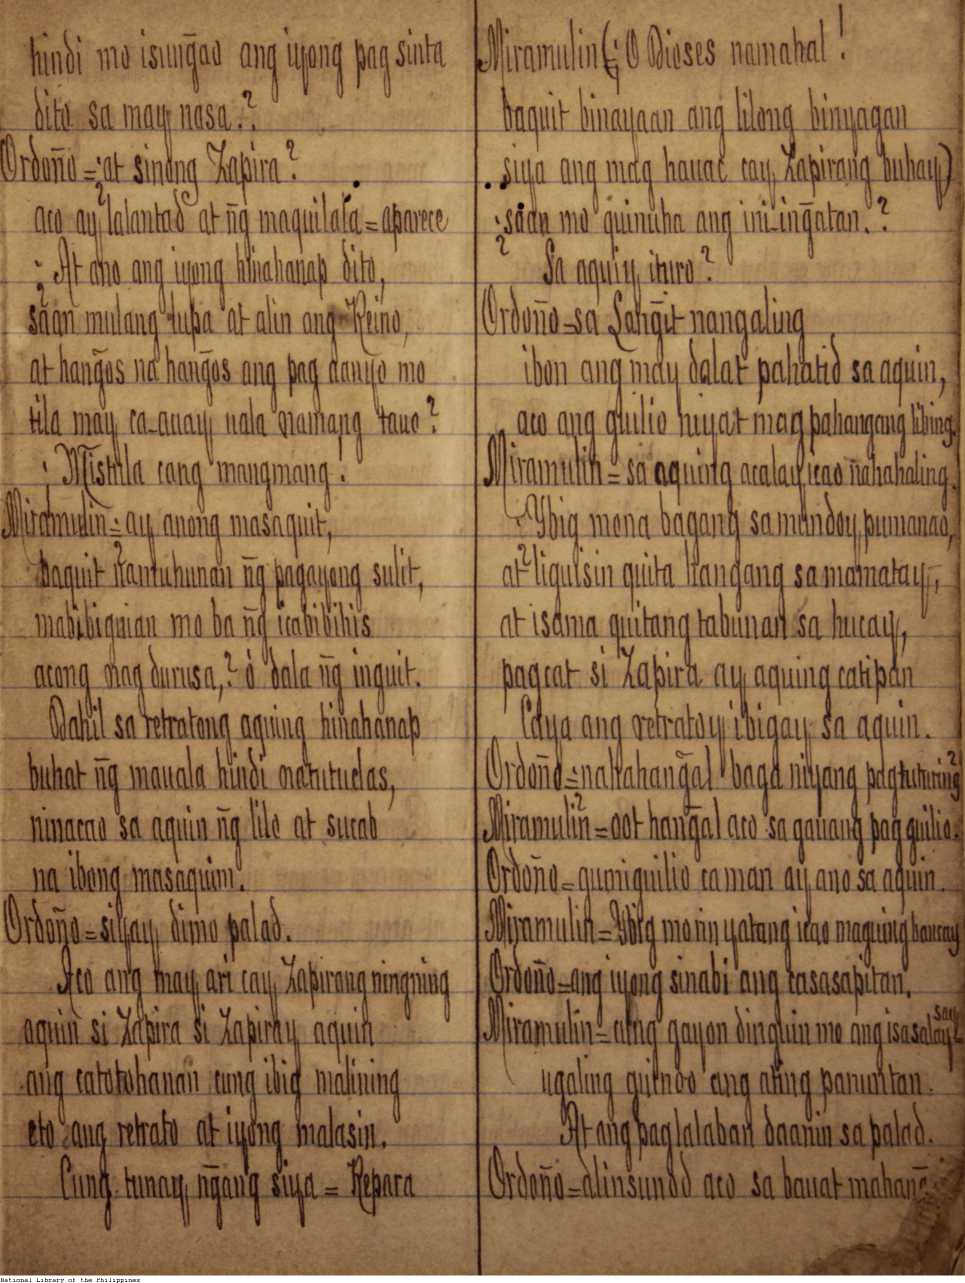 hindi mo isung̃ao ang iyong pag sinta
dito sa may nasa.?
Ordoño = ¿at sinong Zapira?
aco ay lalantad at ñg maquilala = aparece
¿At ano ang iyong hinahanap dito,
saan mulang lupa at alin ang Reino,
at hang̃os na hang̃os ang pag danyo mo
tila may ca-auay uala namang tauo?
¡Mistula cang mangmang!
Miramulin = ay anong masaquit,
baquit itantuhunan ñg pagayong sulit,
mabibiguian mo ba ñg icabibihis
acong nag durusa,? ó dala ñg inguit.
Dahil sa retratong aquing hinahanap
buhat ñg mauala hindi natutuclas,
ninacao sa aquin ñg lilo at sucab
na ibong masaquim.
Ordoño = siyay, dimo palad.
Aco ang may ari cay Zapirang ningning
aquin si Zapira si Zapiray aquin
ang catotohanan cung ibig malining
eto ang retrato at iyong malasin.
Cung tunay ñgang siya = Repara
Miramulin (¡O Dioses namahal!
baquit binayaan ang lilong binyagan
siya ang mag hauac cay Zapirang buhay)
¿saan mo quinuha ang ini-ing̃atan.?
¿Sa aquiy ituro?
Ordoño = sa Lang̃it nangaling
ibon ang may dalat pahatid sa aquin,
aco ang guilio niyat mag pahangang libing.
Miramulin = sa aquing acalay icao ñahahaling.
¿Ybig mona bagang sa mundoy pumanao,
at liguisin quita hangang sa mamatay,
at isama quitang tabunan sa hucay,
pagcat si Zapira ay aquing catipan
Caya ang retratoy ibigay sa aquin.
Ordoño = nahahang̃al baga niyang pagtuturing?
Miramulin = oot hang̃al aco sa gauang pag guilio.
Ordoño = gumiguilio ca man ay ano sa aquin.
Miramulin = Ybig mo rin yatang icao maguing bangcay
Ordoño = ang iyong sinabi ang casasapitan.
Miramulin = ating gayon dinguin mo ang isasalaysay?
ugaling guinoo ang ating panuntan.
At ang paglalaban daanin sa palad.
Ordoño = alinsunod aco sa bauat
National Library of the Philippines